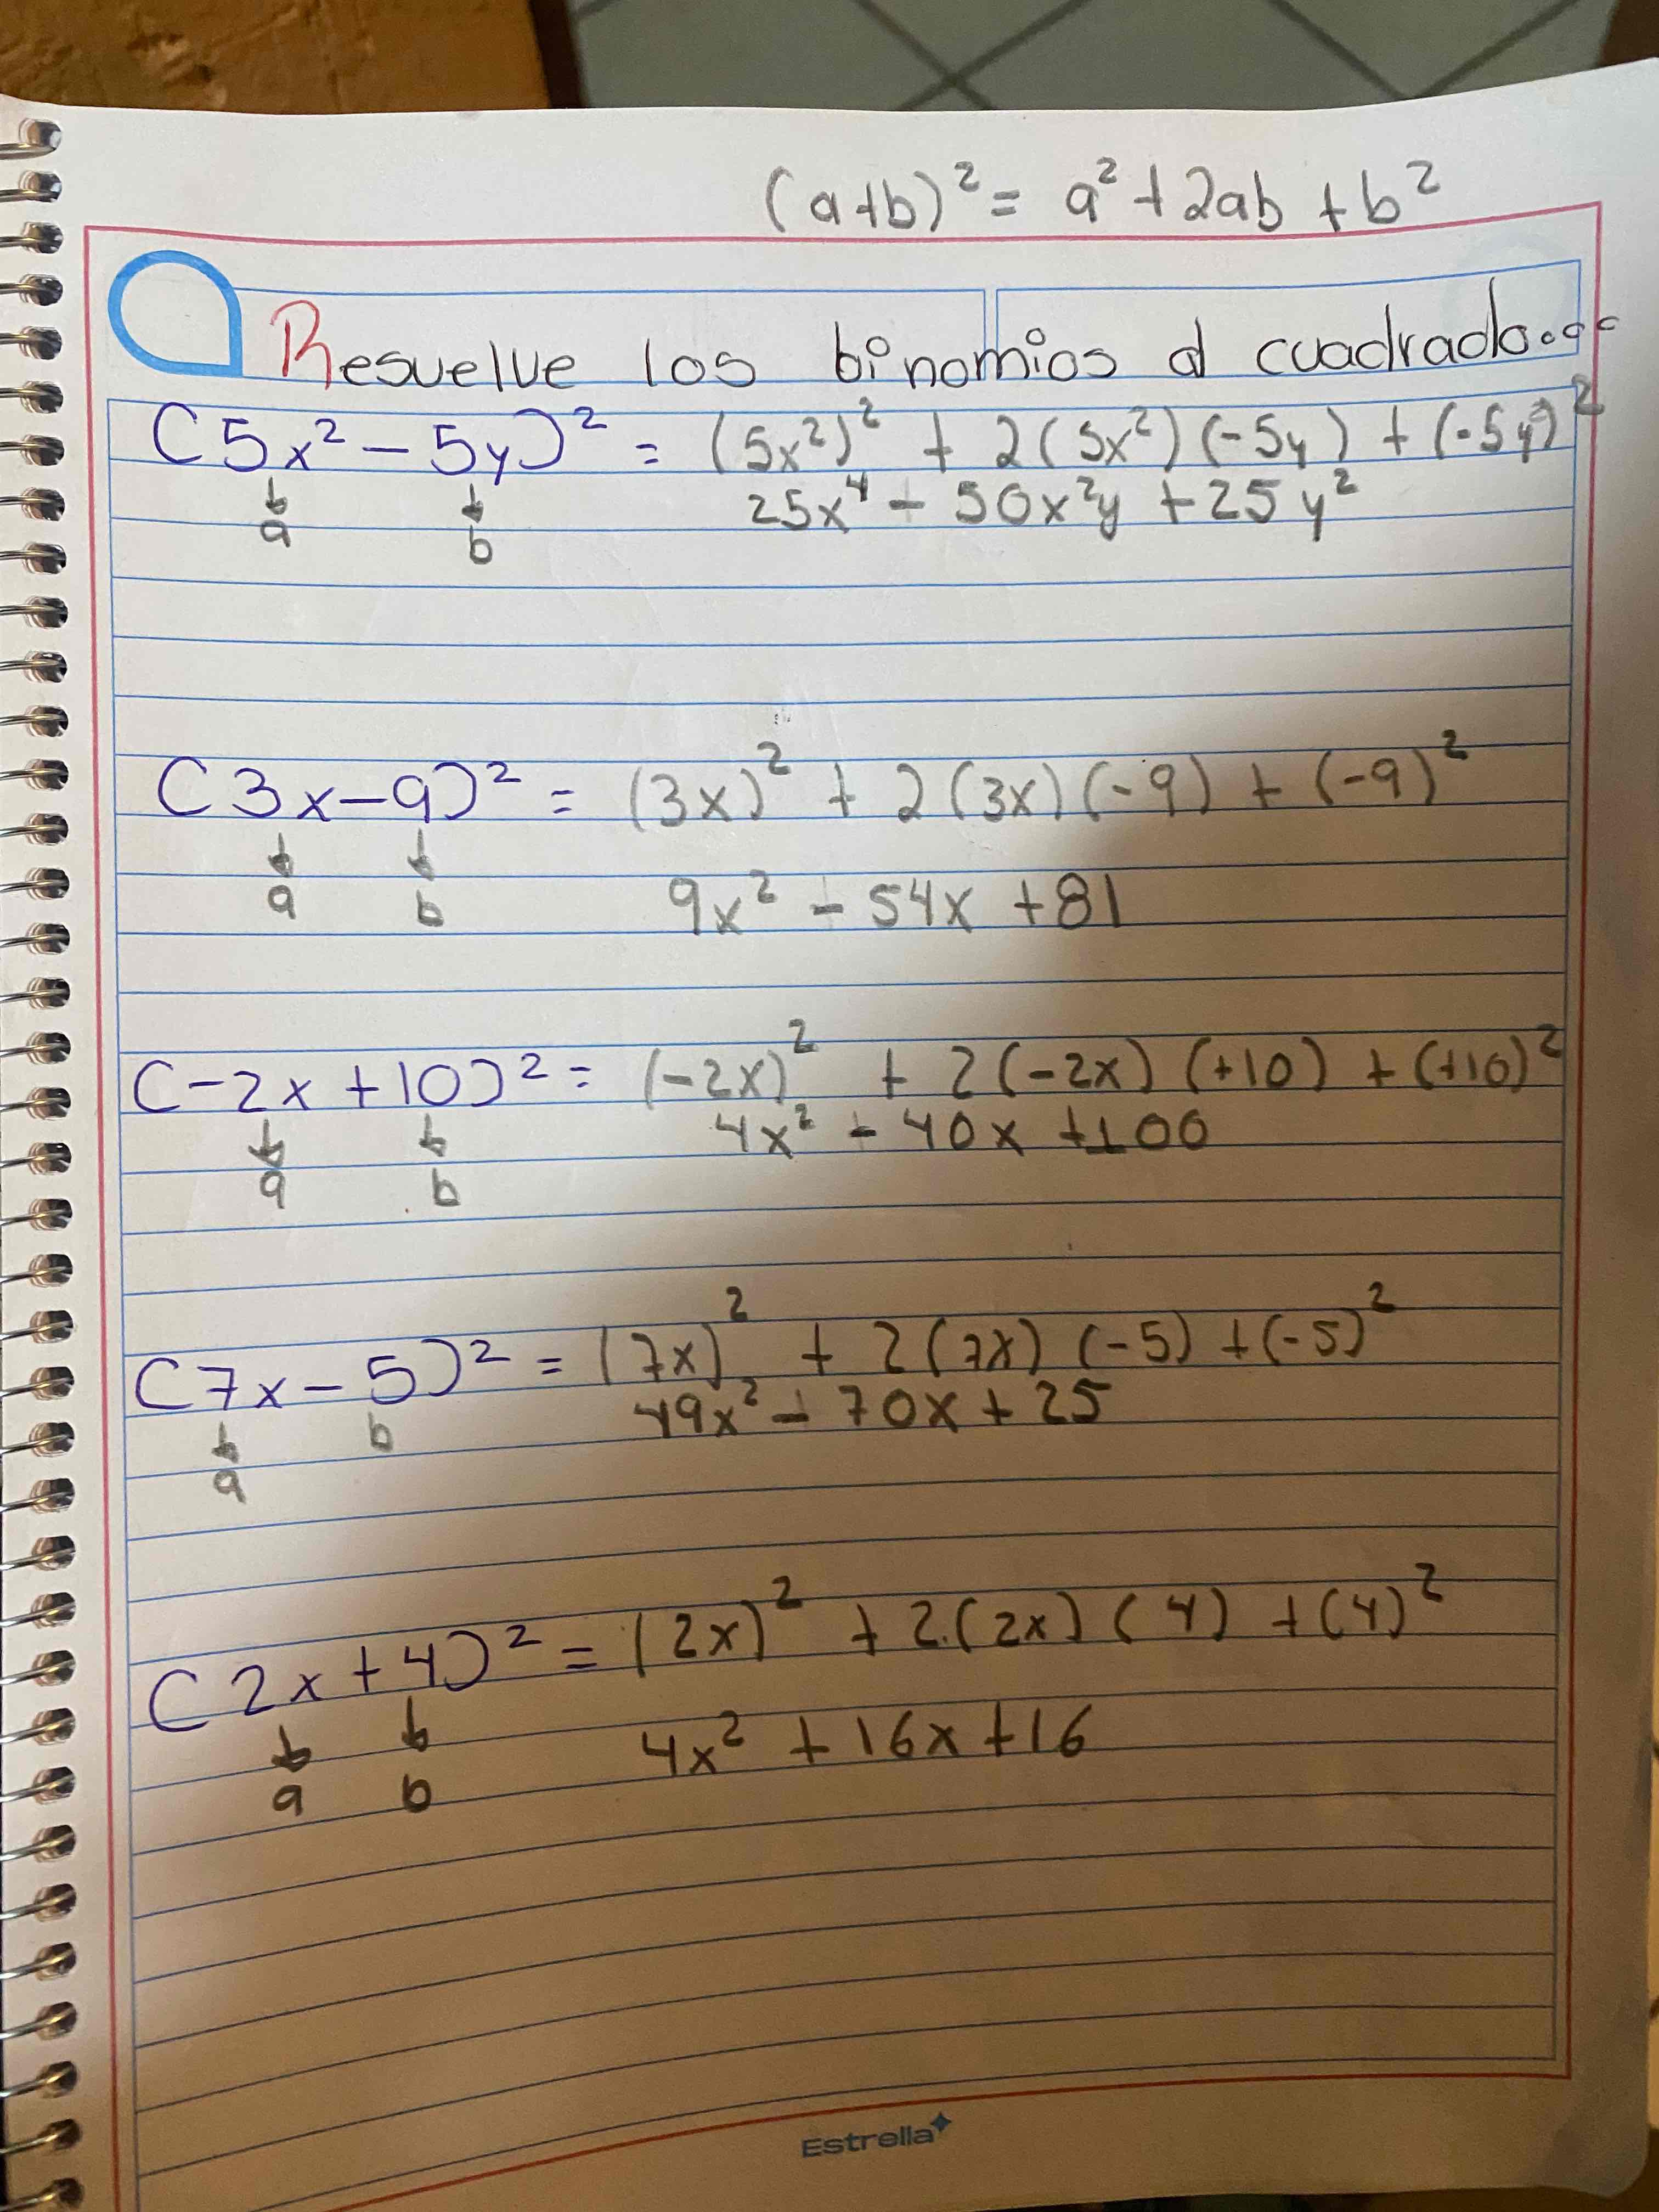 (a+b)² = a² + 2ab + b²
Resuelve los binomios al cuadrado...
(5x² − 5y)² = (5x²)² + 2(5x²)(-5y) + (-5y)²
25x⁴ − 50x²y + 25y²
a b
(3x − 9)² = (3x)² + 2(3x)(-9) + (-9)²
a b 9x² − 54x + 81
(−2x + 10)² = (-2x)² + 2(-2x)(+10) + (+10)²
4x² − 40x + 100
a b
(7x − 5)² = (7x)² + 2(7x)(-5) + (-5)²
b 49x² − 70x + 25
a
(2x + 4)² = (2x)² + 2.(2x)(4) + (4)²
4x² + 16x + 16
a b
Estrella